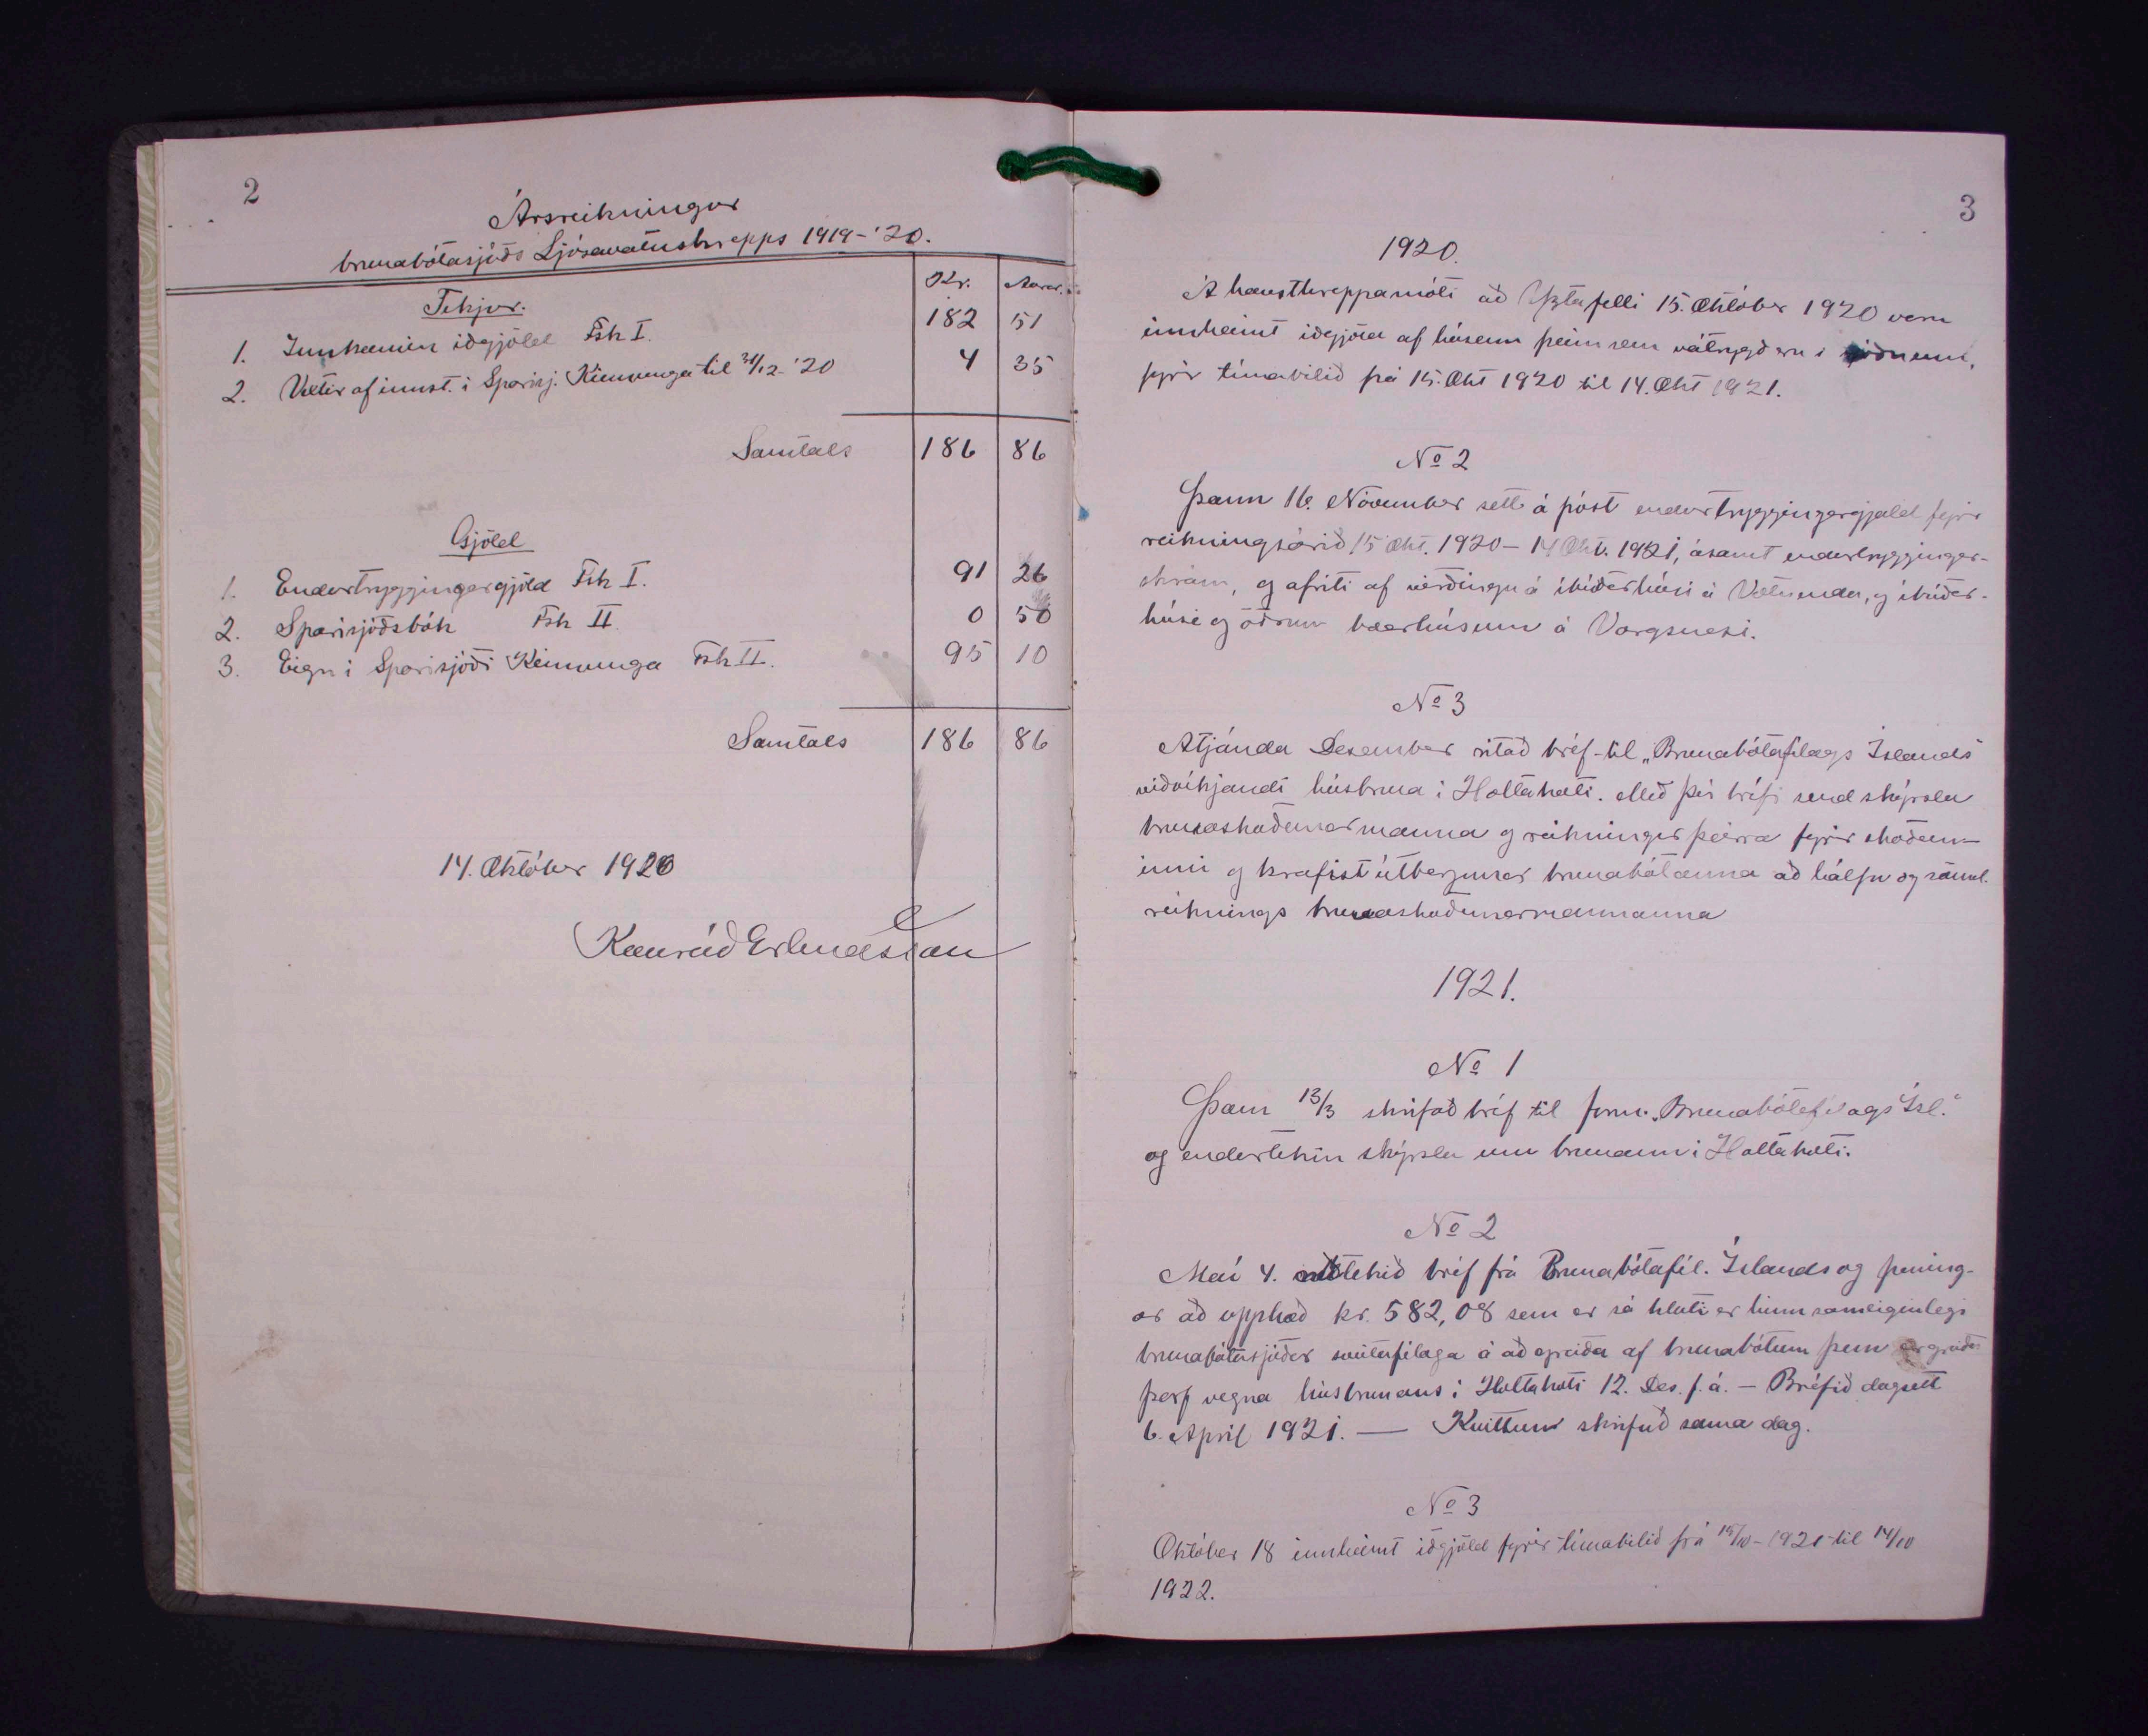 2
Ársreikningur
brunabótasjóðs Ljósavatnshrepps 1919-'20.
Kr. Aurar.
Tekjur.
1. Innkomin iðgjöld Fsk I. 182 51
2. Vextir af innst. í Sparisj. Kinnunga til 31/12 '20 4 35
Samtals 186 86
Gjöld
1. Endurtryggingargjöld Fsk I. 91 26
2. Sparisjóðsbók Fsk II 0 50
3. Eign í Sparisjóði Kinnunga Fsk II. 95 10
Samtals 186 86
14. Október 1920
Konráð Erlendsson
3
1920.
Á hausthreppamóti að Yztafelli 15. Október 1920 voru
innheimt iðgjöld af húsum þeim sem vátrygð eru í sjóðnum,
fyrir tímabilið frá 15. Okt 1920 til 14. Okt 1921.
No 2
Þann 16. Nóvember sett á póst endurtryggingargjald fyrir
reikningsárið 15 Okt. 1920 - 14 Okt. 1921, ásamt endurtryggingar-
skrám, og afriti af virðingu á íbúðarhúsi á Vatnsenda, og íbúðar-
húsi og öðrum bæarhúsum á Vargsnesi.
No 3
Átjánda Desember ritað bréf til „Brunabótafélags Íslands"
viðvíkjandi húsbruna í Holtakoti. Með því bréfi send skýrsla
brunaskaðunarmanna og reikningur þeirra fyrir skoðun-
inni og krafist útborgunar brunabótanna að hálfu og sömul.
reiknings brunaskoðunarmannanna
1921.
No 1
Þann 13/3 skrifað bréf til form. „Brunabótafélags Ísl."
og endurtekin skýrsla um brunann í Holtakoti.
No 2
Maí 4. móttekið bréf frá Brunabótafél. Íslands og pening-
ar að upphæð kr. 582,08 sem er sá hluti er hinn sameiginlegi
brunabótasjóður sveitafélaga á að greiða af brunabótum þeim er greiða
þarf vegna húsbrunans í Holtakoti 12. Des. f. á. - Bréfið dagsett
6. Apríl 1921. — Kvittun skrifuð sama dag.
No 3
Október 18 innheimt iðgjöld fyrir tímabilið frá 15/10 - 1921 til 14/10
1922.